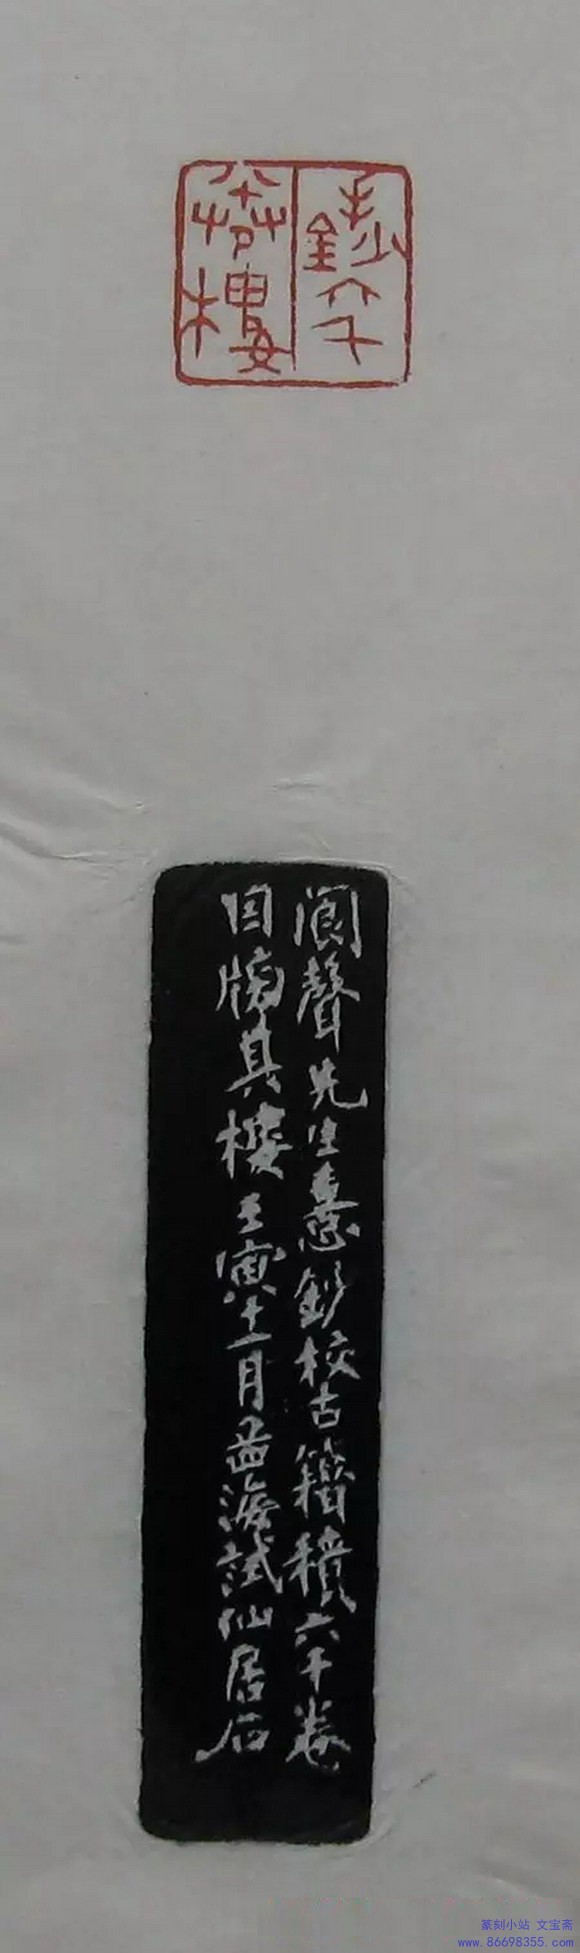 鈔六千
卷樓
閬聲先生憙鈔校古籍積六千卷
因牓其樓壬寅十一月孟海試仙居石
篆刻小站 文宝斋
www.86698355.com